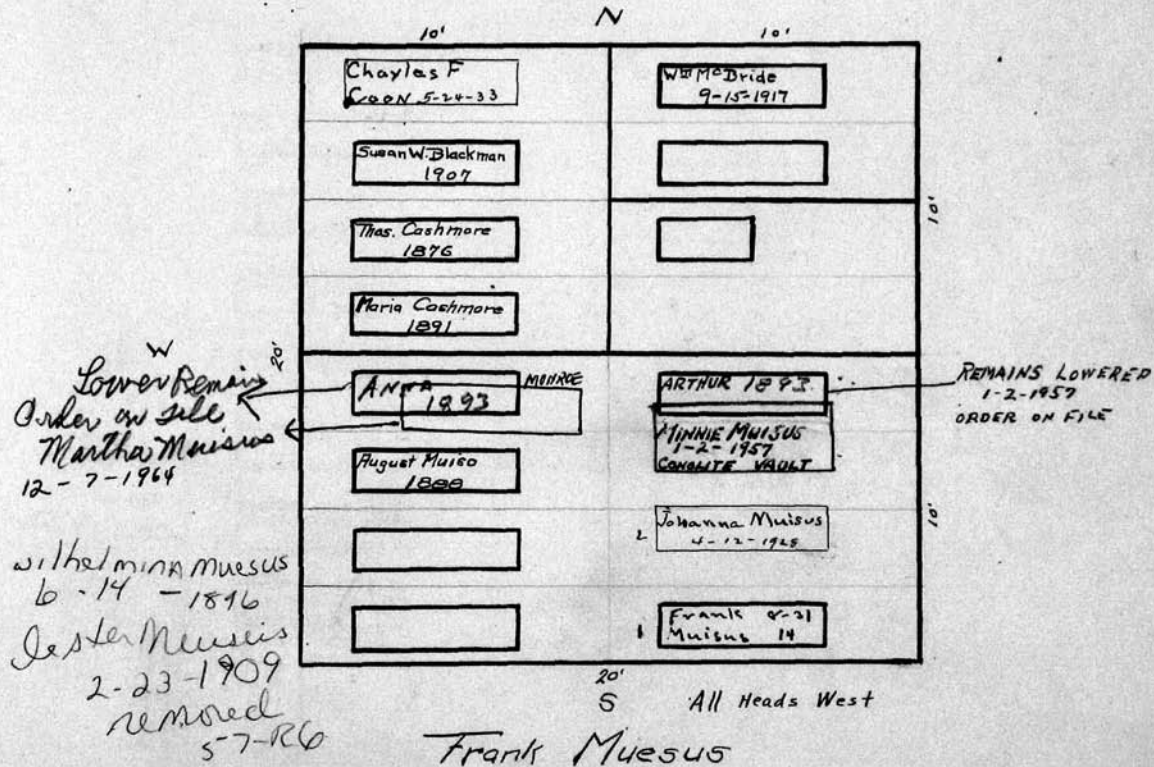 N
10' 10'
Charles F
Coon 5-24-33
Wm McBride
9-15-1917
Susan W. Blackman
1907
10'
Thos. Cashmore
1876
Maria Cashmore
1891
W
20'
Lower Remains
Order on file
Martha Muisus
12-7-1964
ANNA
1893
MONROE
ARTHUR 1893
REMAINS LOWERED
1-2-1957
ORDER ON FILE
MINNIE MUISUS
1-2-1957
CONOLITE VAULT
August Muiso
1888
10'
2
Johanna Muisus
4-12-1928
wilhelmina muesus
6-14-1896
Lester Meuseis
2-23-1909
removed
57-R6
1
Frank 8-31
Muisus 14
20'
S
All Heads West
Frank Muesus